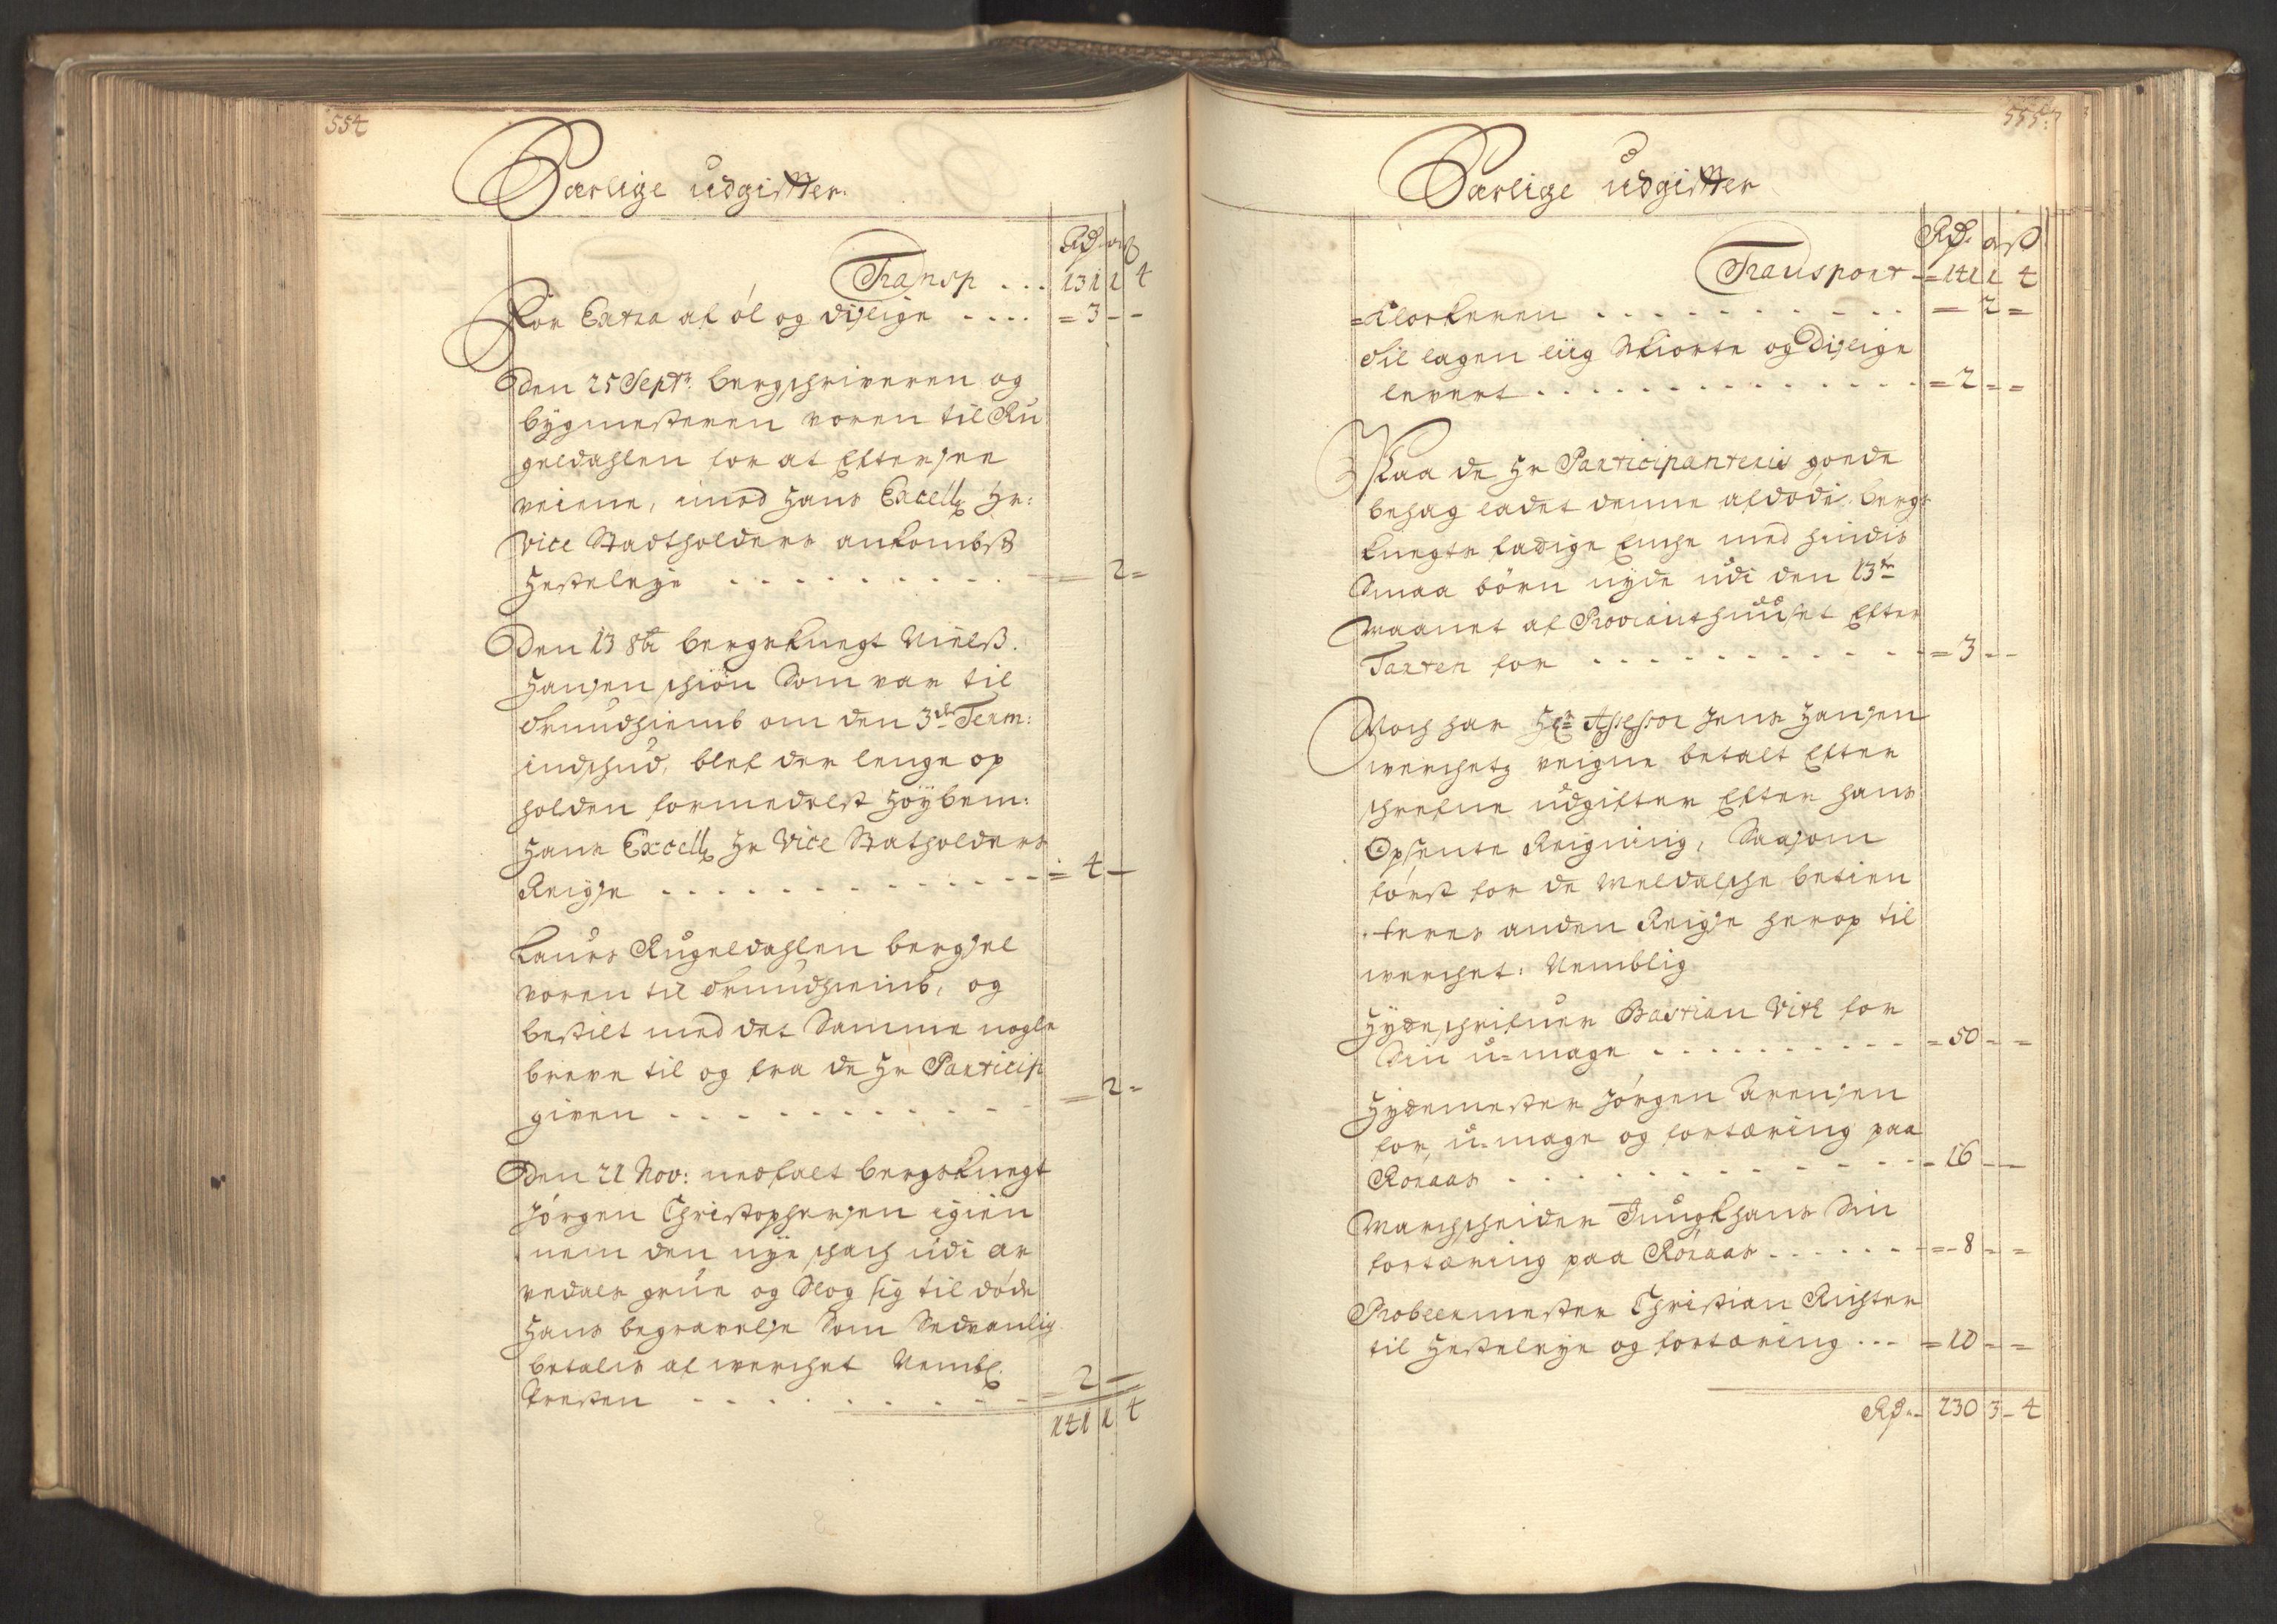 554
Særlige udgiffter.
Rd. ort ß
Transp ... 131 1 4
For Extra af öl og dislige .... = 3 - -
Den 25 Septr. bergschriveren og
bygmesteren voren til Ru
geldahlen for at Eftersee
veiene, imod Hans Excell Hr:
Vice Stadtholders ankombst
Hesteleye ......... = 2 =
Den 13 8br bergsknegt Nielß
Hansen schiön Som var til
Trundhiemb om den 3de Term:
indschud, blef der lenge op
holden formedelst Höybem:
Hans Excell Hr Vice Statholders
Reigse ............. = 4 -
Laurs Rugeldahlen bergsel
voren til Trundhiemb, og
bestilt med det Samme nogle
breve til og fra de Hr Particip
given ............ = 2 =
Den 21 Nov: nedfalt bergsknegt
Jörgen Christophersen igien
nem den nye schach udi ar
vedals grue og Slog sig til döde
Hans begravelse Som Sedvanlig
betalis af werchet Nembl.
Presten .......... = 2 -
141 1 4
555.
Særlige udgiffter
Rd. ort ß
Transport = 141 1 4
Klockeren .......... = 2 =
Til lagen liig Skiorte og Dislige
levert ............. = 2 = =
Paa de Hr Participanteris goede
behag ladet denne afdödis berg=
knegts fadige Enche med hindis
Smaa börn nyde udi den 13de
Maanet af Proviantshuuset Efter
Taxten for ........... = 3 - -
Noch har Hr Assessor Jens Hansen
werchetz veigne betalt Efter
schrefne udgifter Efter hans
Opsente Reigning, Saasom
först for de Meldalsche betien
teres anden Reigse herop til
werchet: Nemblig
Hydeschrifuer Bastian Vith for
Sin u-mage .......... = 50 = =
Hydemester Jörgen Arensen
for u-mage og fortæring paa
Röraas ........... = 16 - -
Marchscheider Jungkhans Sin
fortæring paa Röraas ...... = 8 = =
Probeermester Christian Richter
til Hesteleye og fortæring ... = 10 = =
Rd. 230 3 - 4